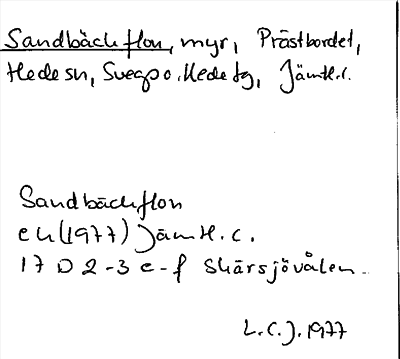 Sandbäckflon, myr, Prästbordet,
Hede sn, Svegs o. Hede tg, Jämtl.l.
Sandbäckflon
ek (1977) Jämtl. l.
17 D 2-3 e-f Skärsjövålen
L.C.J. 1977